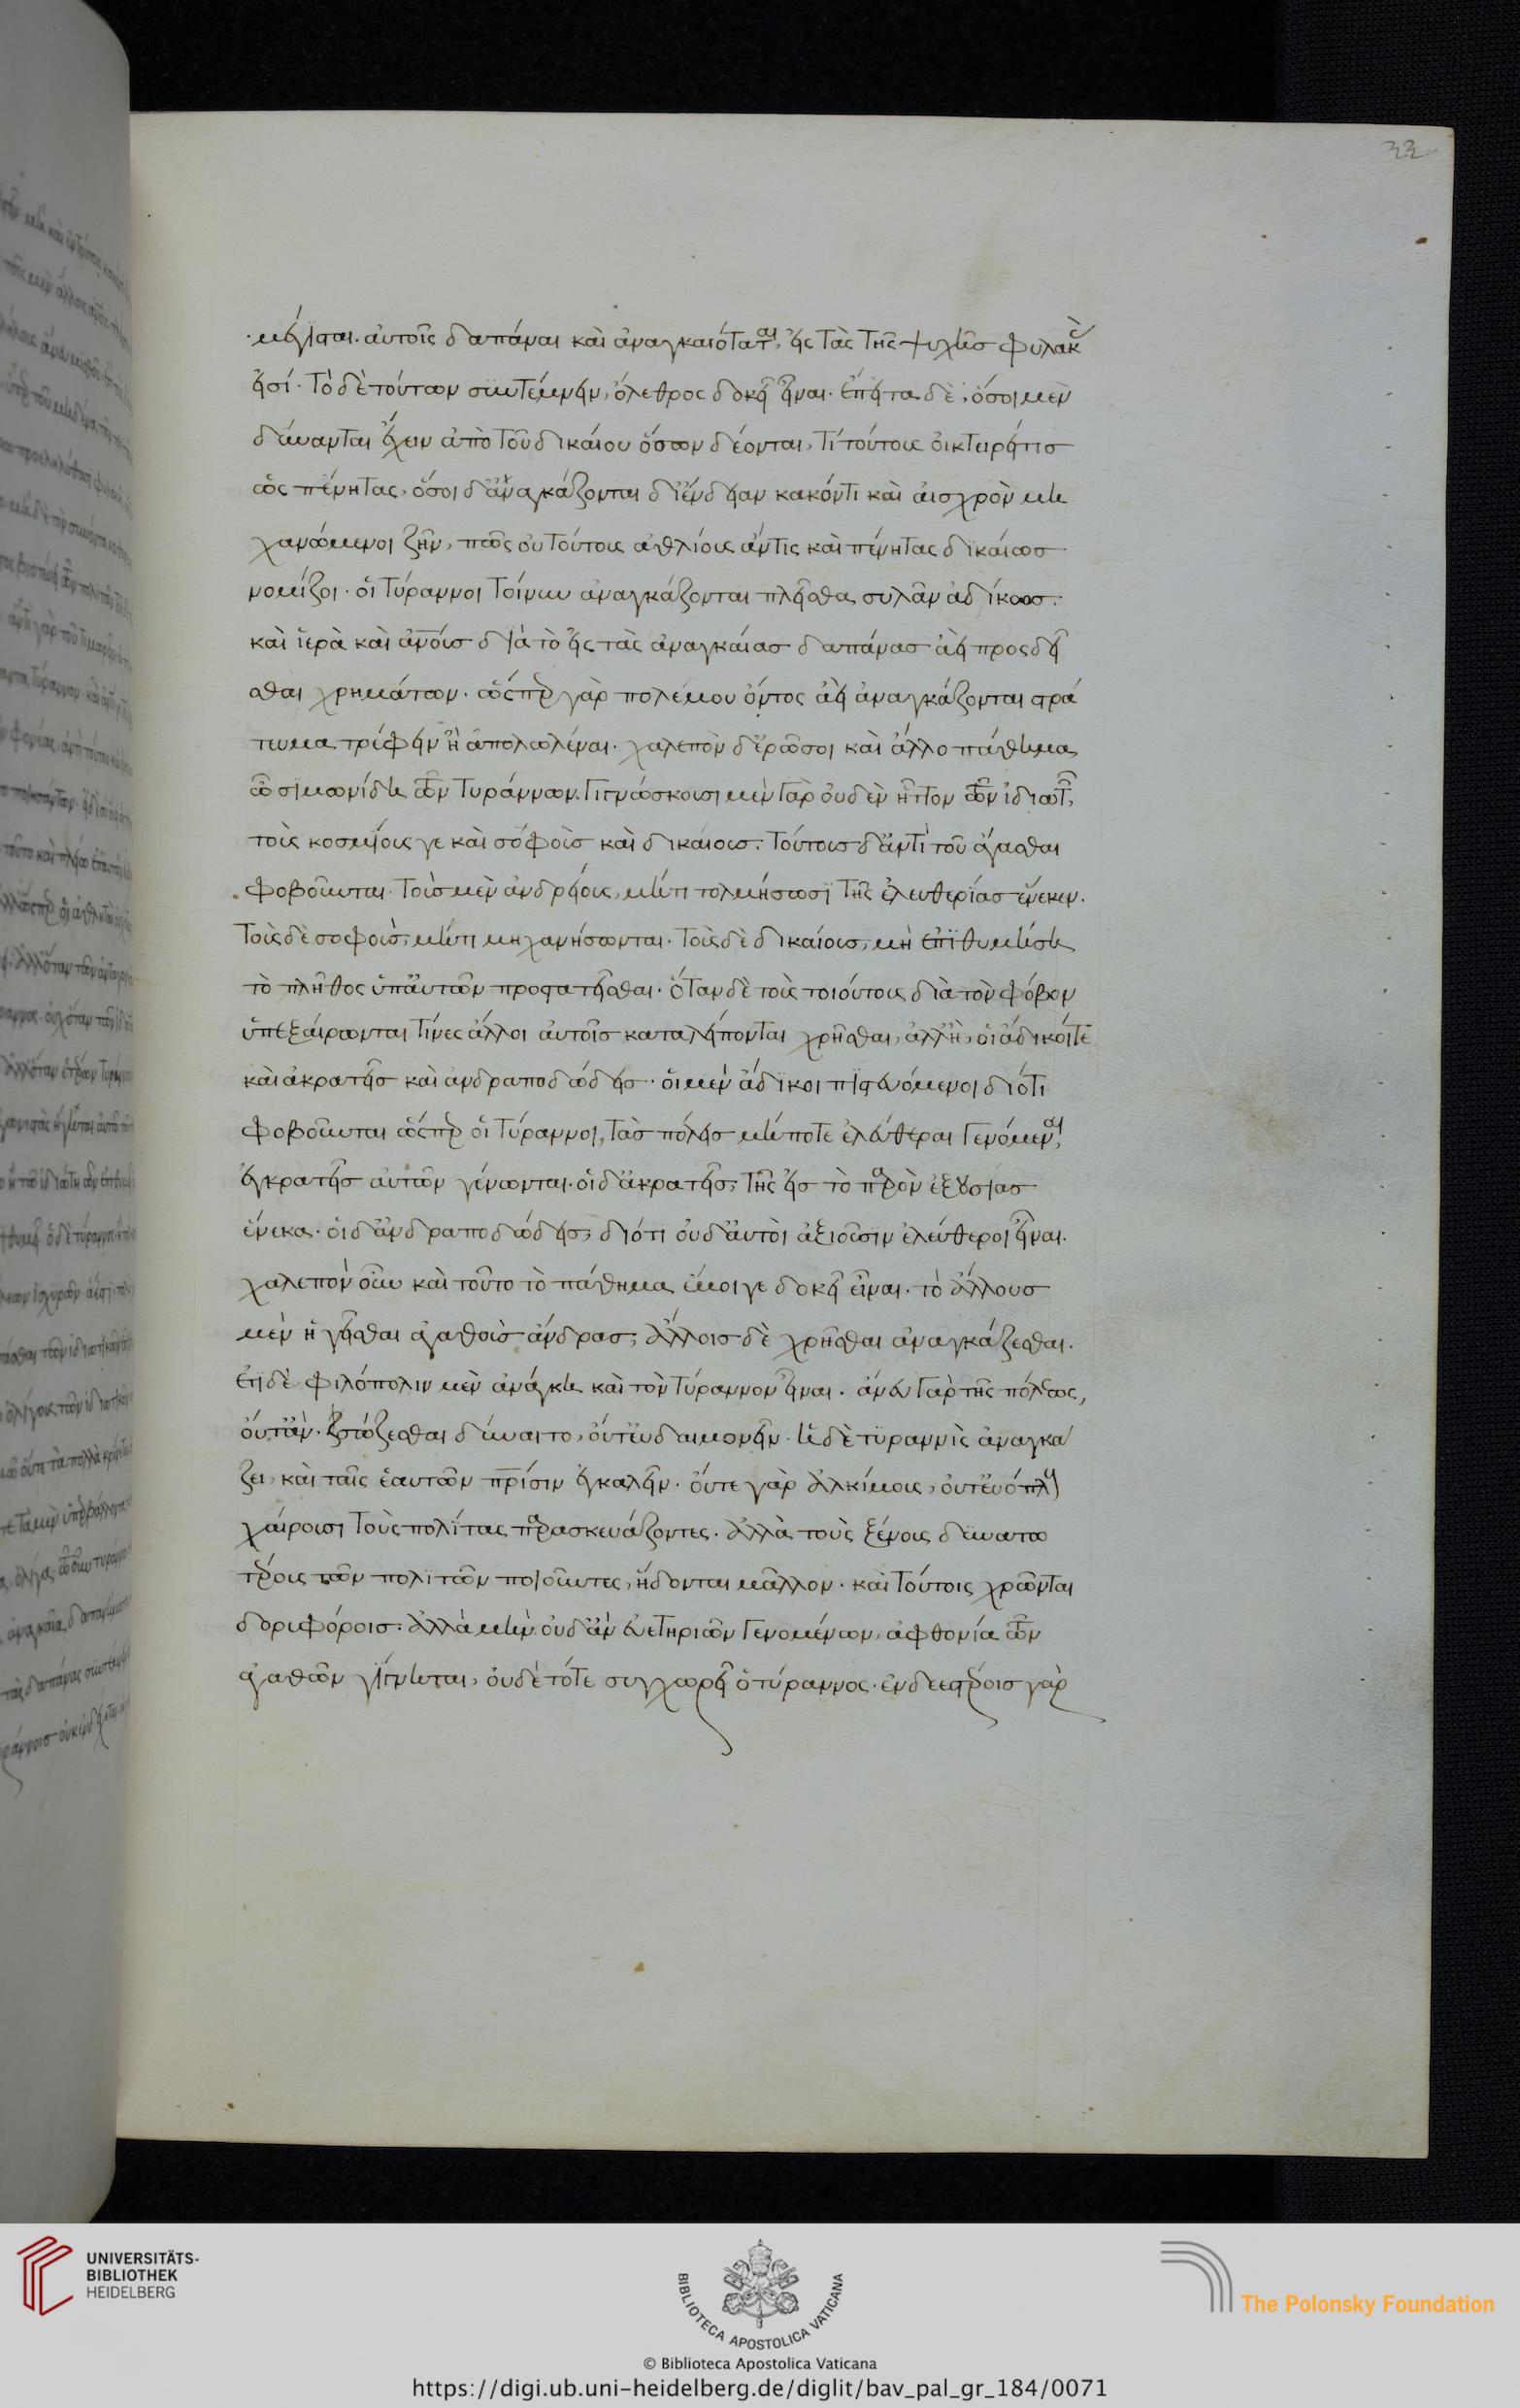 32
μέγισται αὐτοῖς δαπάναι καὶ ἀναγκαιόταται, εἰς τὰς τῆς ψυχῆς φυλακὰς
εἰσί· τὸ δὲ τούτων συντέμνειν, ὄλεθρος δοκεῖ εἶναι. ἔπειτα δὲ, ὅσοι μὲν
δύνανται ἔχειν ἀπὸ τοῦ δικαίου ὅσων δέονται, τί τούτους οἰκτείρει τις
ὡς πένητας, ὅσοι δ' ἀναγκάζονται δι' ἔνδειαν κακόν τι καὶ αἰσχρὸν μη
χανώμενοι ζῆν, πῶς οὐ τούτους ἀθλίους ἄν τις καὶ πένητας δικαίως
νομίζοι· οἱ τύραννοι τοίνυν ἀναγκάζονται πλεῖστα συλᾶν ἀδίκως.
καὶ ἱερὰ καὶ ἀνοὺς διὰ τὸ εἰς τὰς ἀναγκαίας δαπάνας ἀεὶ προσδεῖ
σθαι χρημάτων· ὥσπερ γὰρ πολέμου ὄντος ἀεὶ ἀναγκάζονται στρά
τευμα τρέφειν ἢ ἀπολωλέναι. χαλεπὸν δ' ἐρῶ σοι καὶ ἄλλο πάθημα
ὦ σιμωνίδη τῶν τυράννων. γιγνώσκουσι μὲν γὰρ οὐδὲν ἧττον τῶν ἰδιωτῶν,
τοὺς κοσμίους γε καὶ σοφοὺς καὶ δικαίους. τούτους δ' ἀντὶ τοῦ ἄγασθαι
φοβοῦνται. τοὺς μὲν ἀνδρείους, μή τι τολμήσωσι τῆς ἐλευθερίας ἕνεκεν.
τοὺς δὲ σοφοὺς, μή τι μηχανήσωνται. τοὺς δὲ δικαίους, μὴ ἐπιθυμήση
τὸ πλῆθος ὑπ' αὐτῶν προστατεῖσθαι. ὅταν δὲ τοὺς τοιούτους διὰ τὸν φόβον
ὑπεξαίρωνται τίνες ἄλλοι αὐτοῖς καταλείπονται χρῆσθαι, ἀλλ' ἢ, οἱ ἄδικοί τε
καὶ ἀκρατεῖς καὶ ἀνδραποδώδεις· οἱ μὲν ἄδικοι πιστευόμενοι διότι
φοβοῦνται ὥσπερ οἱ τύραννοι, τὰς πόλεις μή ποτε ἐλεύθεραι γενόμεναι,
ἐγκρατεῖς αὐτῶν γένωνται. οἱ δ' ἀκρατεῖς, τῆς εἰς τὸ παρὸν ἐξουσίας
ἕνεκα. οἱ δ' ἀνδραποδώδεις, διότι οὐδ' αὐτοὶ ἀξιοῦσιν ἐλεύθεροι εἶναι.
χαλεπὸν οὖν καὶ τοῦτο τὸ πάθημα ἔμοιγε δοκεῖ εἶναι. τὸ ἄλλους
μὲν ἡγεῖσθαι ἀγαθοὺς ἄνδρας, ἄλλοις δὲ χρῆσθαι ἀναγκάζεσθαι.
ἔτι δὲ φιλόπολιν μὲν ἀνάγκη καὶ τὸν τύραννον εἶναι. ἄνευ γὰρ τῆς πόλεως,
οὔτ' ἂν σώζεσθαι δύναιτο, οὔτ' εὐδαιμονεῖν. ἡ δὲ τυραννὶς ἀναγκά
ζει, καὶ ταῖς ἑαυτῶν πρίσιν ἐγκαλεῖν. οὔτε γὰρ ἀλκίμους, οὔτ' εὐόπλους
χαίρουσι τοὺς πολίτας παρασκευάζοντες. ἀλλὰ τοὺς ξένους δυνατω
τέρους τῶν πολιτῶν ποιοῦντες, ἥδονται μᾶλλον. καὶ τούτοις χρῶνται
δορυφόροις. ἀλλὰ μὴν οὐδ' ἂν εὐετηριῶν γενομένων, ἀφθονία τῶν
ἀγαθῶν γίγνηται, οὐδὲ τότε συγχωρεῖ ὁ τύραννος. ἐνδεεστέροις γὰρ
UNIVERSITÄTS-
BIBLIOTHEK
HEIDELBERG
BIBLIOTECA APOSTOLICA VATICANA
The Polonsky Foundation
© Biblioteca Apostolica Vaticana
https://digi.ub.uni-heidelberg.de/diglit/bav_pal_gr_184/0071